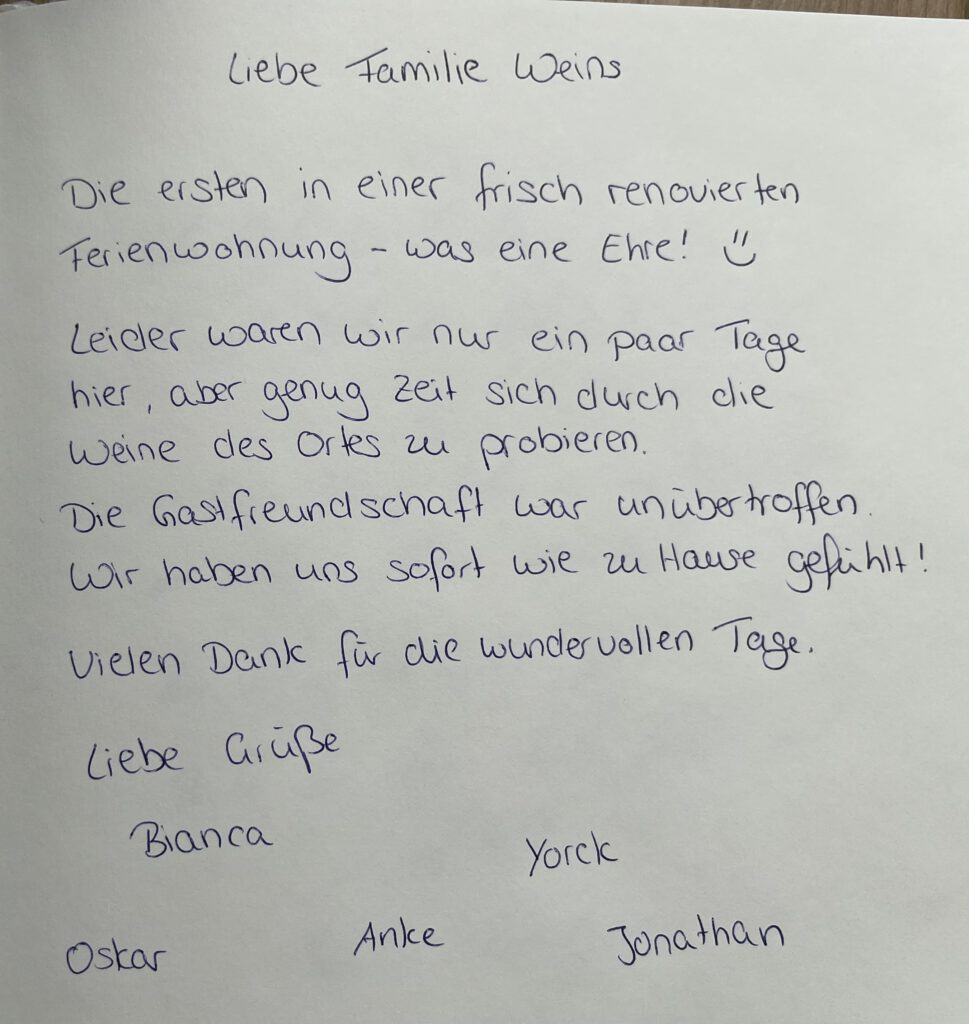 Liebe Familie Weins
Die ersten in einer frisch renovierten
Ferienwohnung - was eine Ehre! ü
Leider waren wir nur ein paar Tage
hier, aber genug Zeit sich durch die
Weine des Ortes zu probieren.
Die Gastfreundschaft war unübertroffen.
Wir haben uns sofort wie zu Hause gefühlt!
Vielen Dank für die wundervollen Tage.
Liebe Grüße
Bianca
Yorck
Oskar Anke Jonathan